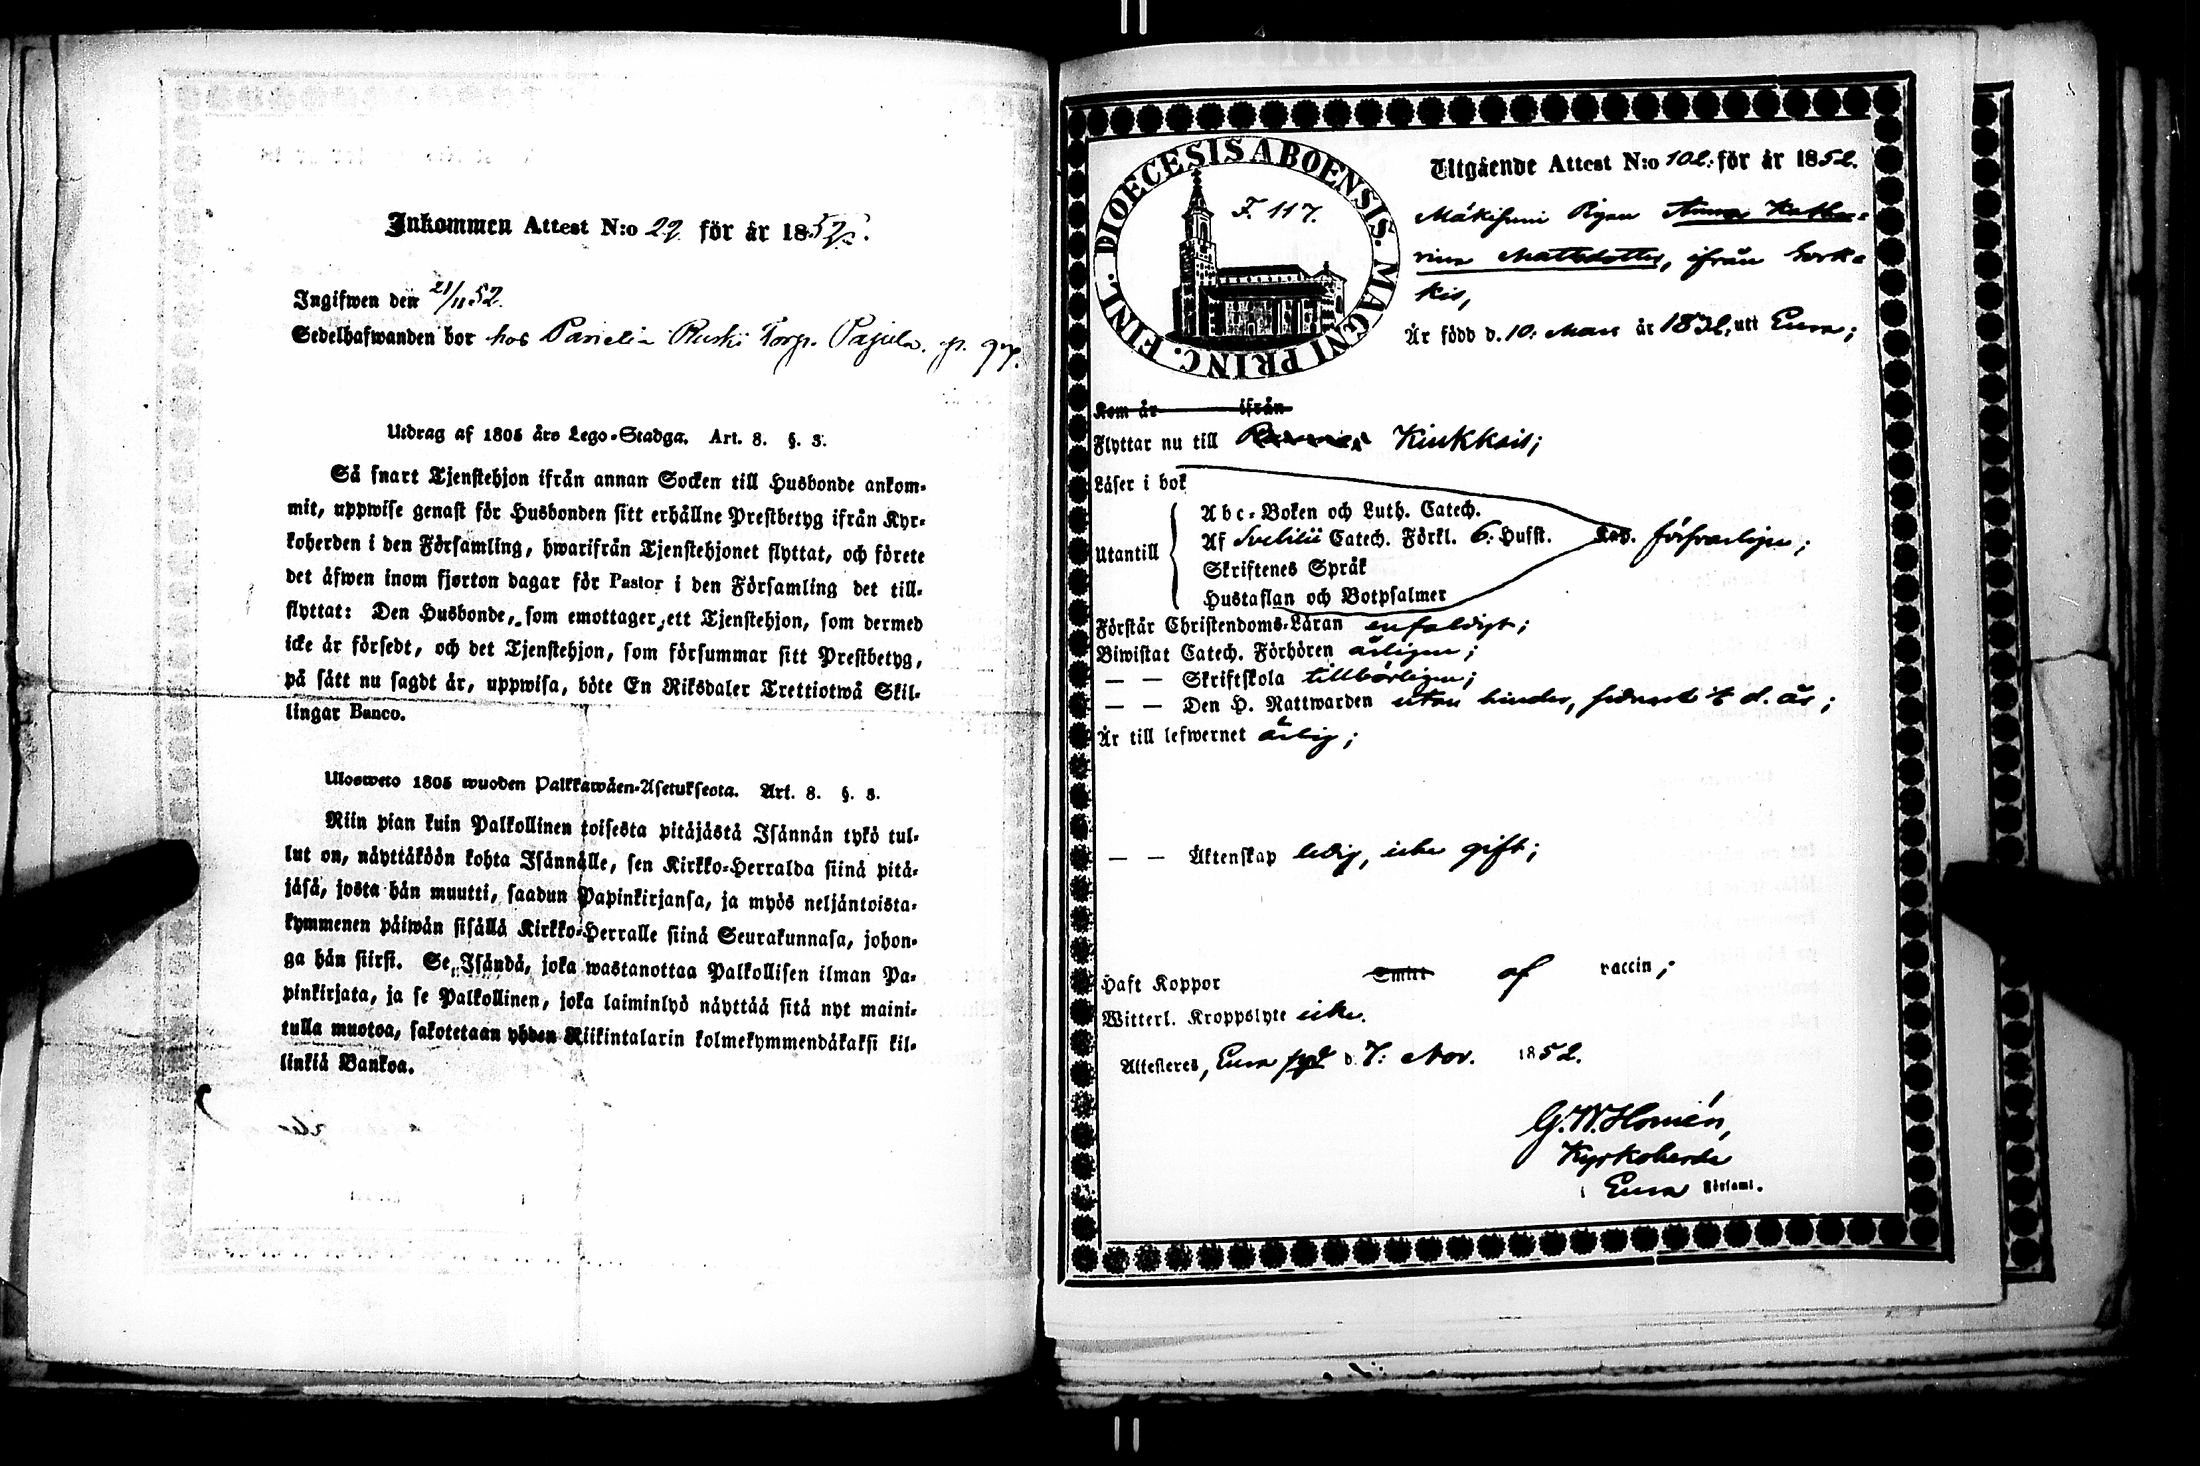 Inkommen Attest N:o 29 för år 1852.
Ingifwen den 21/11 52.
Sedelhafwanden bor hos Panelia Ruski Torp.
Utdrag af 1805 års Lego-Stadga. Art. 8. §. 3.
Så snart Tjenstehjon ifrån annan Socken till Husbonde ankom-
mit, uppwise genast för Husbonden sitt erhållne Prestbetyg ifrån Kyr-
koherden i den Församling, hwarifrån Tjenstehjonet flyttat, och förete
det äfwen inom fjorton dagar för Pastor i den Församling det till-
flyttat: Den Husbonde, som emottager ett Tjenstehjon, som dermed
icke är försedt, och det Tjenstehjon, som försummar sitt Prestbetyg,
på sätt nu sagdt är, uppwisa, böte En Riksdaler Trettiotwå Skil-
lingar Banco.
Ulosweto 1805 wuoden Palkkawäen-Asetuksesta. Art. 8. §. 3.
Niin pian kuin Palkollinen toisesta pitäjästä Isännän tykö tul-
lut on, näyttäköön kohta Isännälle, sen Kirkko-Herralda siinä pitä-
jäsä, josta hän muutti, saadun Papinkirjansa, ja myös neljäntoista-
kymmenen päiwän sisällä Kirkko-Herralle siinä Seurakunnasa, johon-
ga hän siirsi. Se Isändä, joka wastanottaa Palkollisen ilman Pa-
pinkirjata, ja se Palkollinen, joka laiminlyö näyttää sitä nyt maini-
tulla muotoa, sakotetaan yhden Riikintalarin kolmekymmendäkaksi kil-
linkiä Bankoa.
DIOECESIS ABOENSIS. MAGNI PRINC. FINL.
F. 117.
Utgående Attest N:o 102. för år 1852.
Pigan Anna Katha-
rina Mattsdotter, ifrån
Är född d. 10. Mars år 1832, utt Eura;
Kom år ifrån
Flyttar nu till Kiukkais;
Läser i bok
Utantill
Abc-Boken och Luth. Catech.
Af Svebilii Catech. Förkl. 6. Hufst. försvarligen;
Skriftenes Språk
Hustaflan och Botpsalmer
Förstår Christendoms-Läran enfaldigt;
Biwistat Catech. Förhören årligen;
— — Skriftskola tillbörligen;
— — Den H. Nattwarden utan hinder, sednast d. år;
Är till lefwernet ärlig;
— — Äktenskap ledig, icke gift;
Haft Koppor Smitt af vaccin;
Witterl. Kroppslyte icke.
Attesteres, Eura d. 7. Nov. 1852.
G. W. Homén,
Kyrkoherde
i Eura Församl.